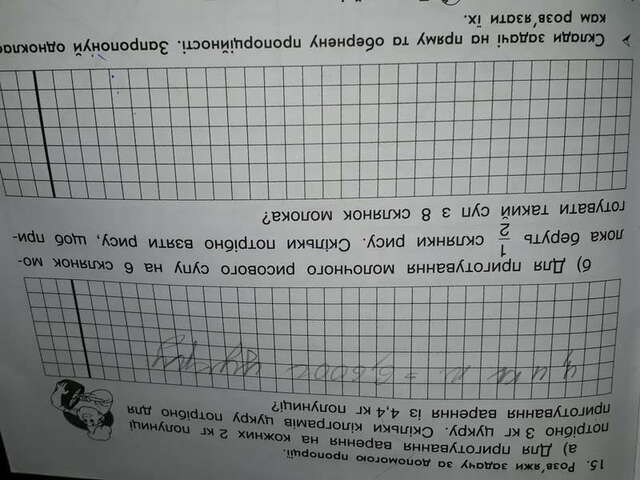 15. Розв'яжи задачу за допомогою пропорції.
а) Для приготування варення на кожних 2 кг полуниці
потрібно 3 кг цукру. Скільки кілограмів цукру потрібно для
приготування варення із 4,4 кг полуниці?
= 6,600 цукру
б) Для приготування молочного рисового супу на 6 склянок мо-
лока беруть 1/2 склянки рису. Скільки потрібно взяти рису, щоб при-
готувати такий суп з 8 склянок молока?
➤ Склади задачі на пряму та обернену пропорційності. Запропонуй однокла
кам розв'язати їх.